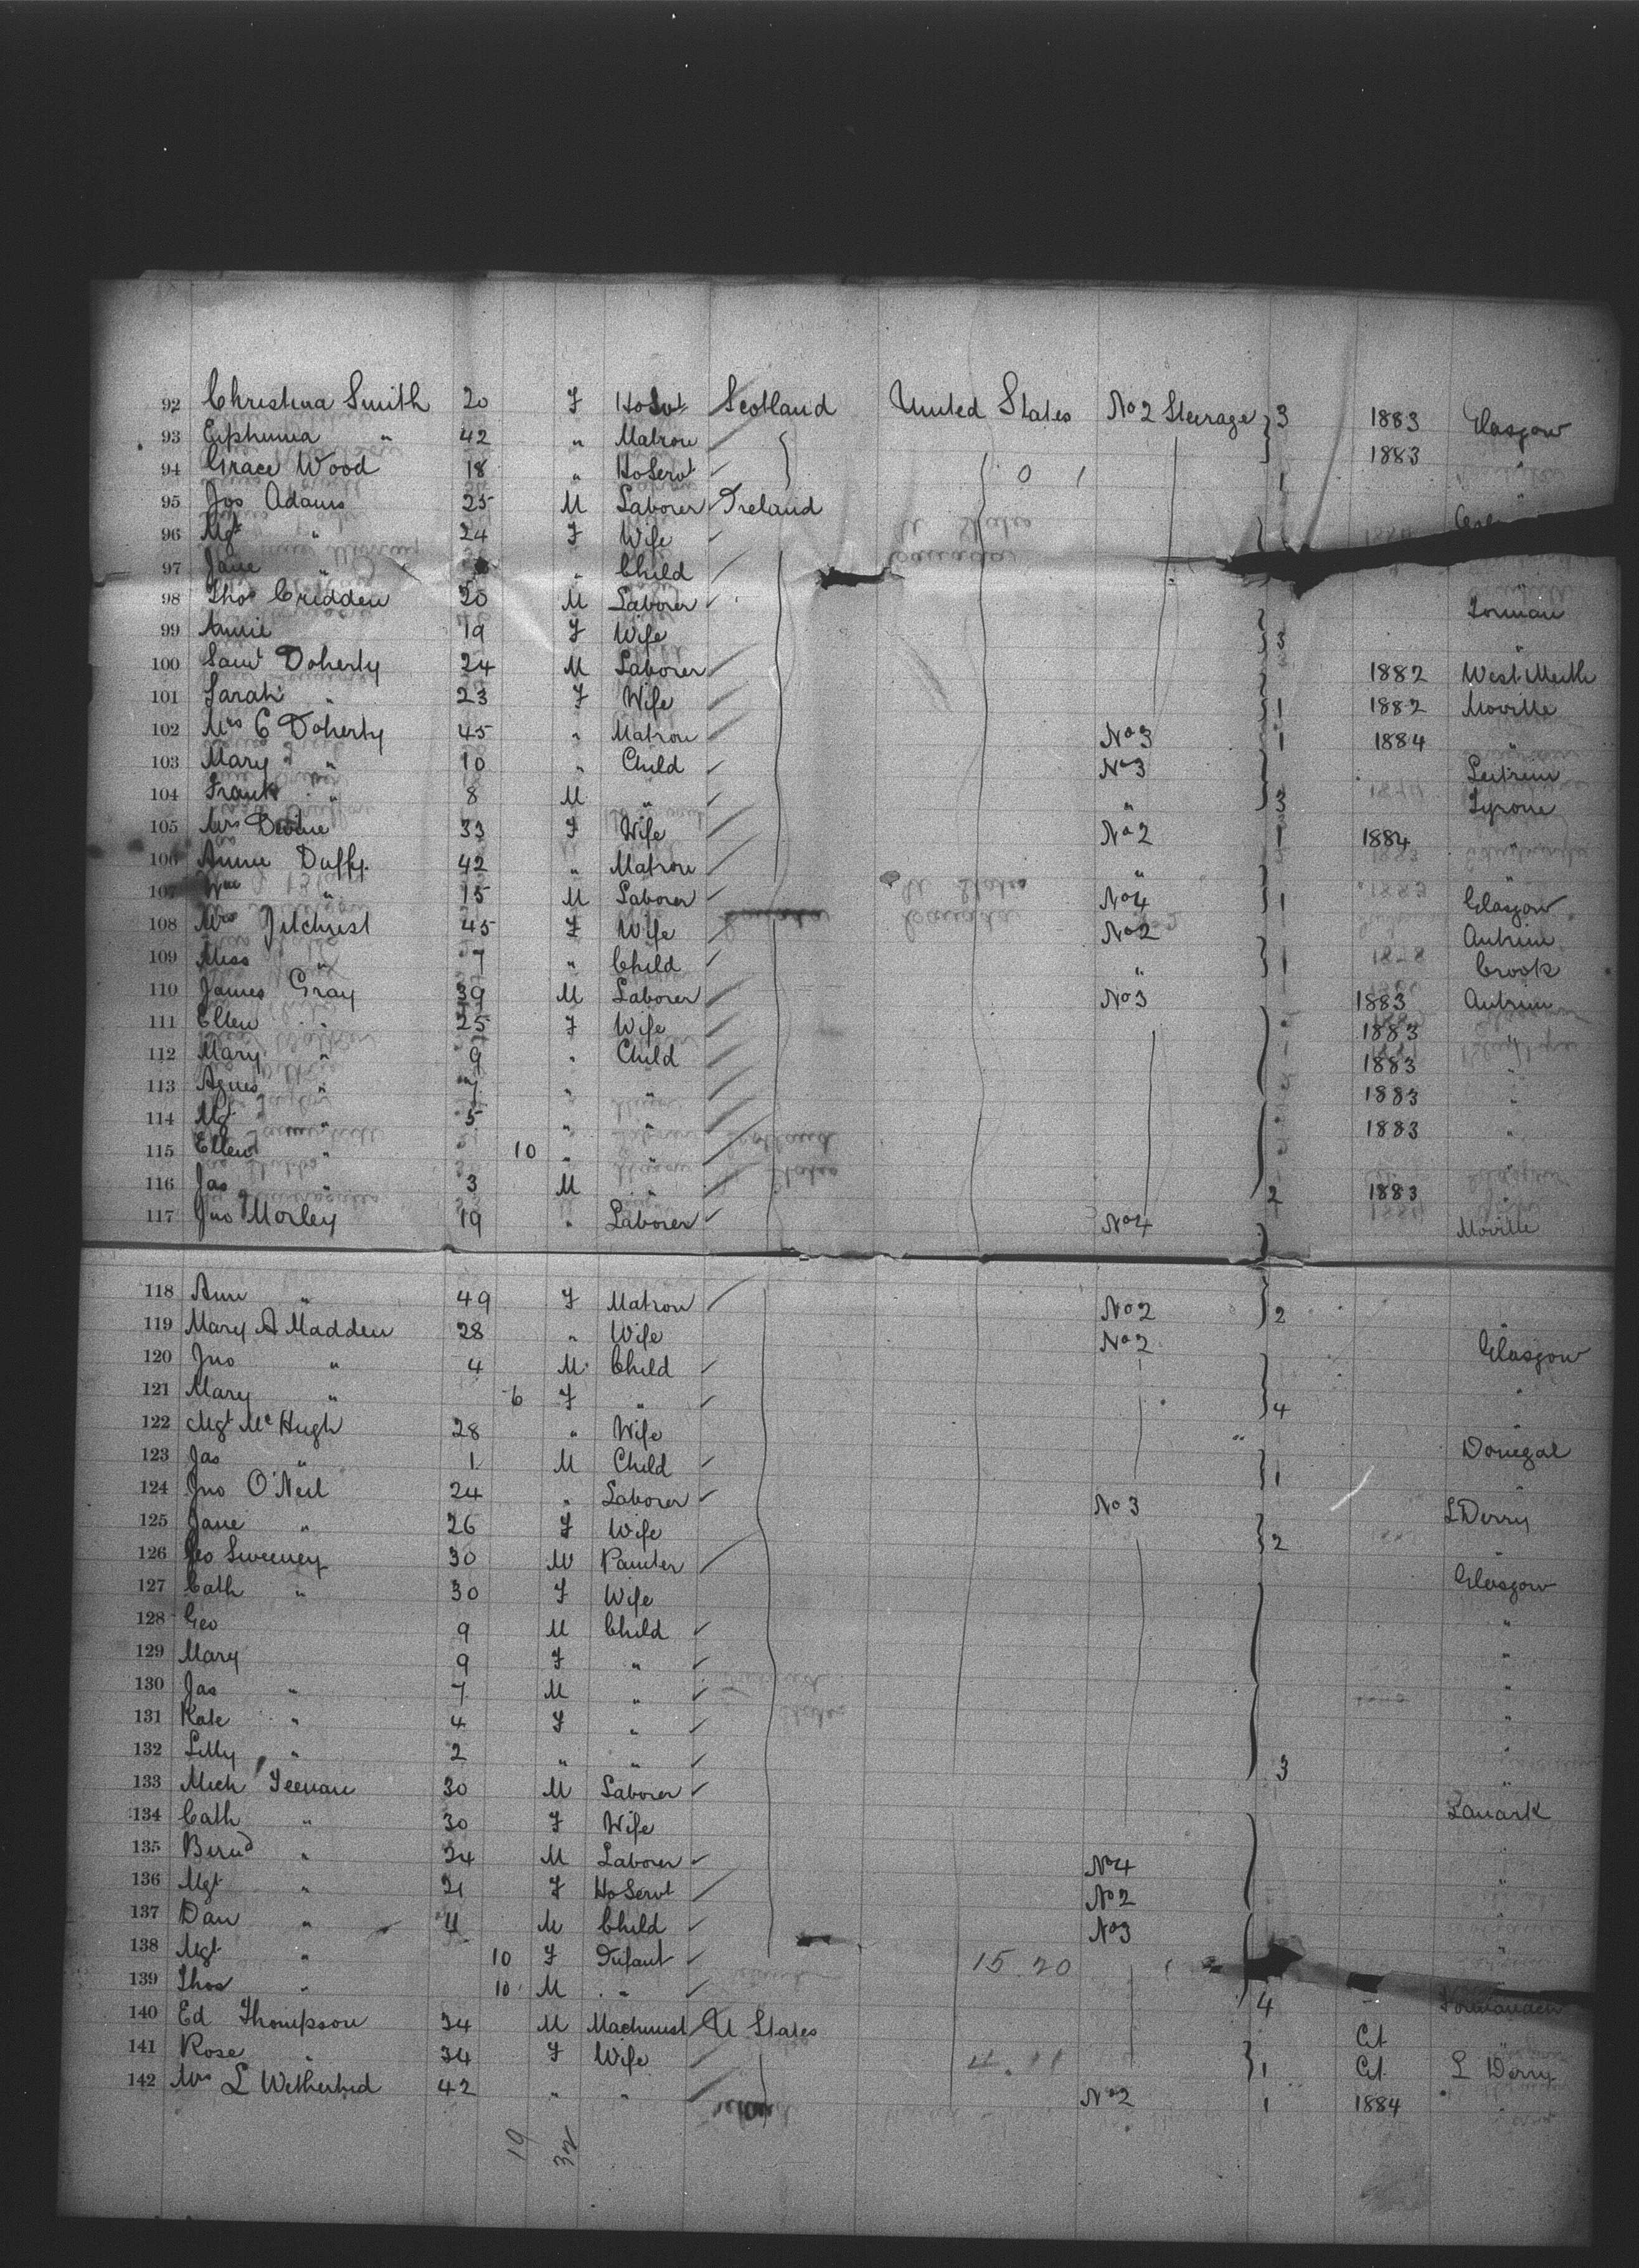 92 Christina Smith 20 F HoServt Scotland United States No 2 Steerage 3 1883 Glasgow
93 Euphemia " 42 " Matron 1883 "
94 Grace Wood 18 " HoServt 0 1 1
95 Jos Adams 25 M Laborer Ireland
96 Mgt " 24 F Wife
97 Jane " " Child
98 Thos Cridden 20 M Laborer
99 Annie 19 F Wife 3 "
100 Saml Doherty 24 M Laborer 1882 West Meath
101 Sarah " 23 F Wife 1 1882 Moville
102 Mrs C Doherty 45 " Matron No 3 1 1884 "
103 Mary " 10 " Child No 3 Leitrim
104 Frank " 8 M " " 3 Tyrone
105 Mrs 33 F Wife No 2 1 1884 "
106 Annie Duffy 42 " Matron "
107 Wm " 15 M Laborer No 4 1 Glasgow
108 Mrs Gilchrist 45 F Wife No 2 Antrim
109 Miss " 7 " Child " 1 Crook
110 James Gray 39 M Laborer No 3 1883 Antrim
111 Ellen " 25 F Wife 1883 "
112 Mary " 9 " Child 1883 "
113 Agnes " 7 " " 1883 "
114 Mgt " 5 " " 1883 "
115 Ellen " 10 " " "
116 Jas " 3 M " 2 1883 "
117 Jno Morley 19 " Laborer No 4 Moville
118 Ann " 49 F Matron No 2 2 "
119 Mary A Madden 28 " Wife No 2 Glasgow
120 Jno " 4 M Child "
121 Mary " 6 F " 4 "
122 Mgt McHugh 28 " Wife Donegal
123 Jas " 1 M Child 1 "
124 Jno O'Neil 24 " Laborer No 3 L Derry
125 Jane " 26 F Wife 2
126 Geo Sweeney 30 M Painter Glasgow
127 Cath " 30 F Wife "
128 Geo 9 M Child "
129 Mary 9 F " "
130 Jas " 7 M " "
131 Kate " 4 F " "
132 Lilly " 2 " " 3 "
133 Mich Feenan 30 M Laborer Lanark
134 Cath " 30 F Wife "
135 Bernd " 24 M Laborer No 4 "
136 Mgt " 21 F HoServt No 2
137 Dan " 11 M Child No 3
138 Mgt " 10 F Infant 15 20
139 Thos " 10 M " 4
140 Ed Thompson 34 M Machinist U States Cit
141 Rose " 34 F Wife 4. 11 1 Cit L Derry
142 Mrs L 42 " " No 2 1 1884 "
19 32